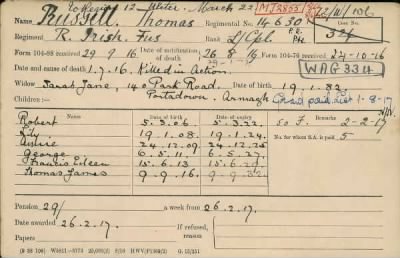 To Region 12 Ulster. March 22 M23803 22/W/1061
Name Russell. Thomas Regimental No. 14630 Case No.
Regiment R. Irish. Fus Rank L/Cpl. 324
Form 104-88 received 29.9.16 Date of notification of death 26.8.16 Form 104-76 received 24-10-16
Date and cause of death 1.7.16. Killed in Action. WAG3314
Widow Sarah Jane, 140 Park Road, Date of birth 19.1.82.
Children :- Portadown, Armagh Grant paid List 1-8-17
Name Date of Birth
Robert 5.3.06. 5.3.22. So F. 2-2-17
Lily 19.1.08. 19.1.24. No. for whom S.A. is paid 5
24.12.09. 24.12.25.
George 6.5.11. 6.5.27.
Francis Eileen 15.6.13 15.6.29.
Thomas James 9.9.16 9.9.32.
Pension 29/ a week from 26.2.17.
Date awarded 26.2.17. If refused, reason
Papers